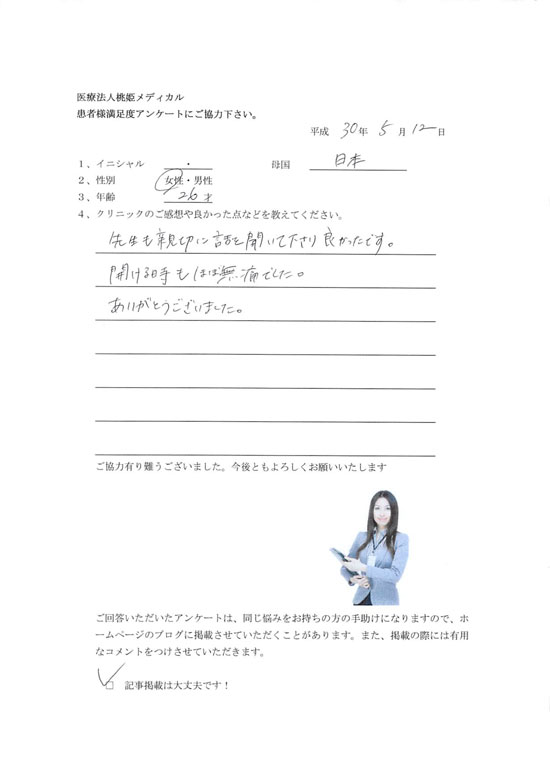 医療法人桃姫メディカル
患者様満足度アンケートにご協力下さい。
平成 30年 5月 12日
1、イニシャル ・ 母国 日本
2、性別 女性・男性
3、年齢 26才
4、クリニックのご感想や良かった点などを教えてください。
先生も親切に話を聞いて下さり良かったです。
開ける時もほぼ無痛でした。
ありがとうございました。
ご協力有り難うございました。今後ともよろしくお願いいたします
ご回答いただいたアンケートは、同じ悩みをお持ちの方の手助けになりますので、ホ
ームページのブログに掲載させていただくことがあります。また、掲載の際には有用
なコメントをつけさせていただきます。
□ 記事掲載は大丈夫です！